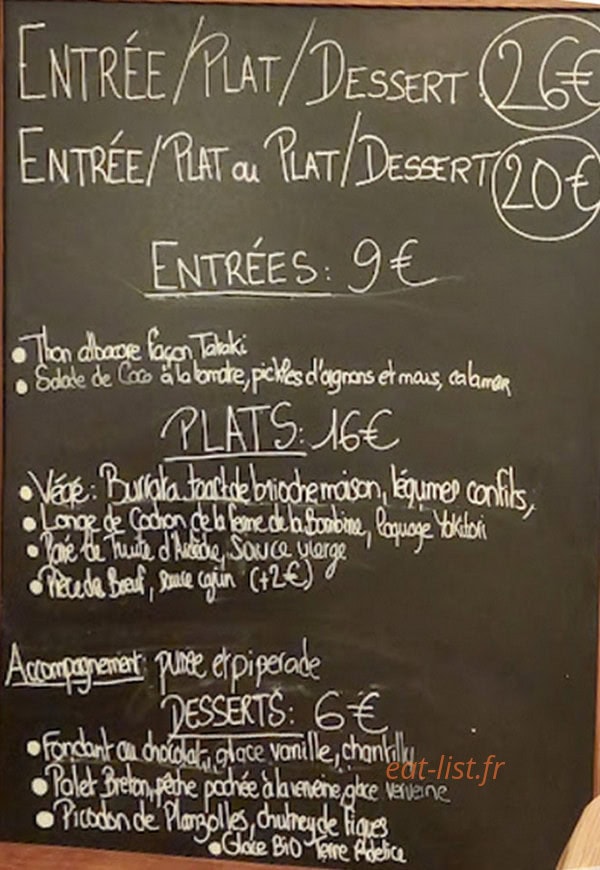 ENTRÉE/PLAT/DESSERT: 26€
ENTRÉE/PLAT ou PLAT/DESSERT 20€
ENTRÉES: 9€
• Thon albacore façon Tataki
• Salade de Coco à la tomate, pickles d'oignons et maïs, calamar
PLATS: 16€
• Végé: Burrata toast de brioche maison, légumes confits,
• Longe de Cochon de la ferme de la Bombine, laquage Yakitori
• Pavé de Truite d'Ardèche, Sauce vierge
• Pièce de Bœuf, sauce cajun (+2€)
Accompagnement: purée et piperade
DESSERTS: 6€
• Fondant au chocolat, glace vanille, chantilly
eat-list.fr
• Palet Breton, pêche pochée à la verveine, glace verveine
• Picodon de Planzolles, chutney de figues
• Glace BiO Terre Adélice